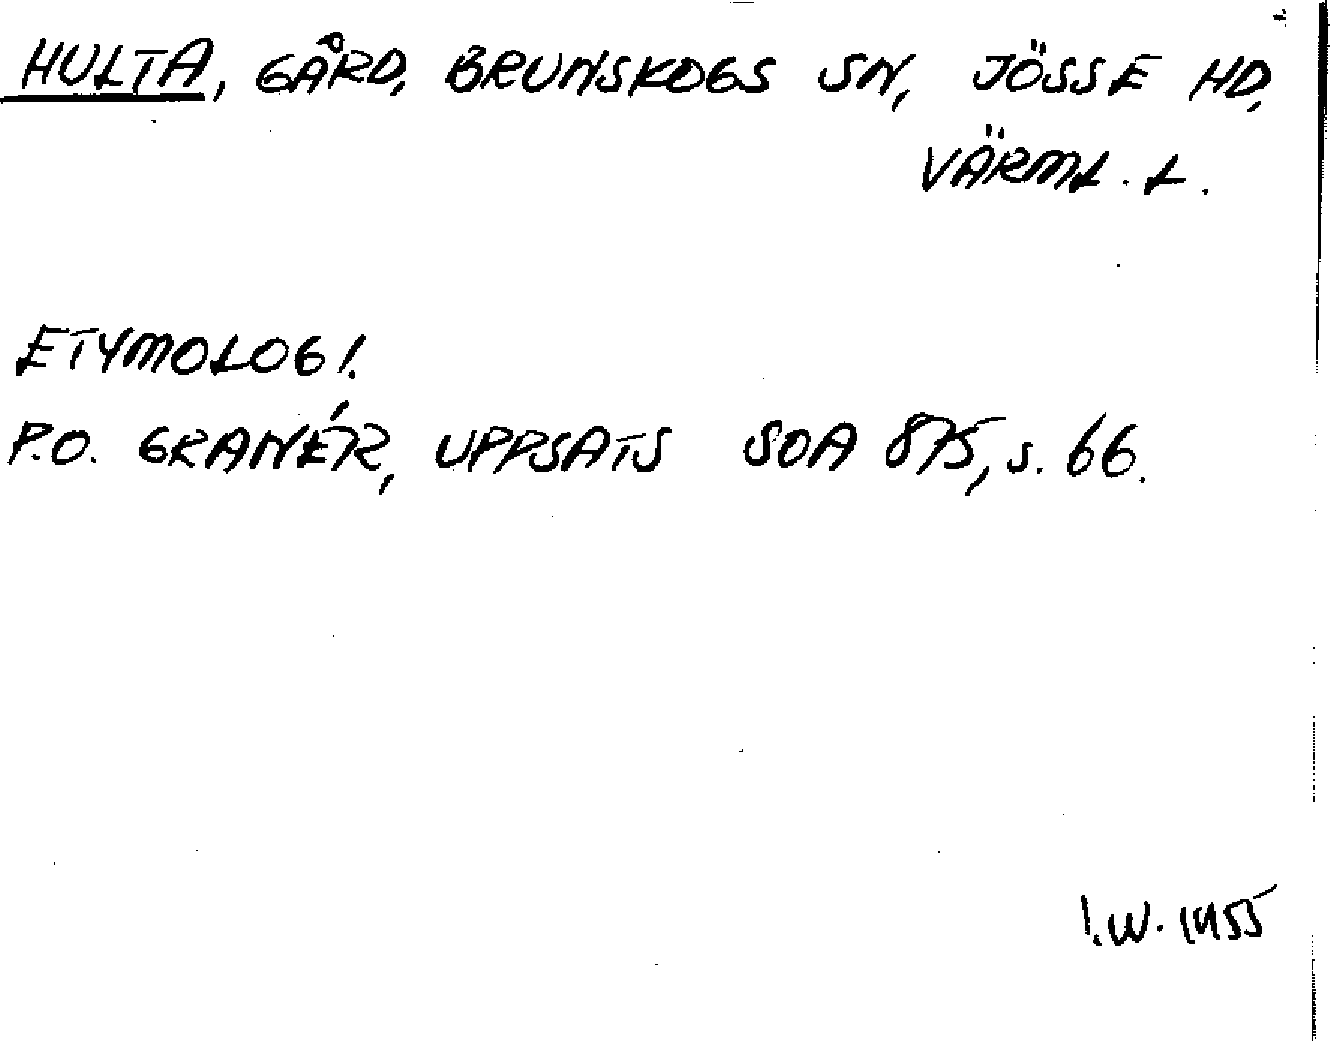 HULTA, GÅRD, BRUNSKOGS SN, JÖSSE HD,
VÄRML. L.
ETYMOLOGI.
P.O. GRANÉR, UPPSATS SOA 875, s. 66.
I.W. 1955